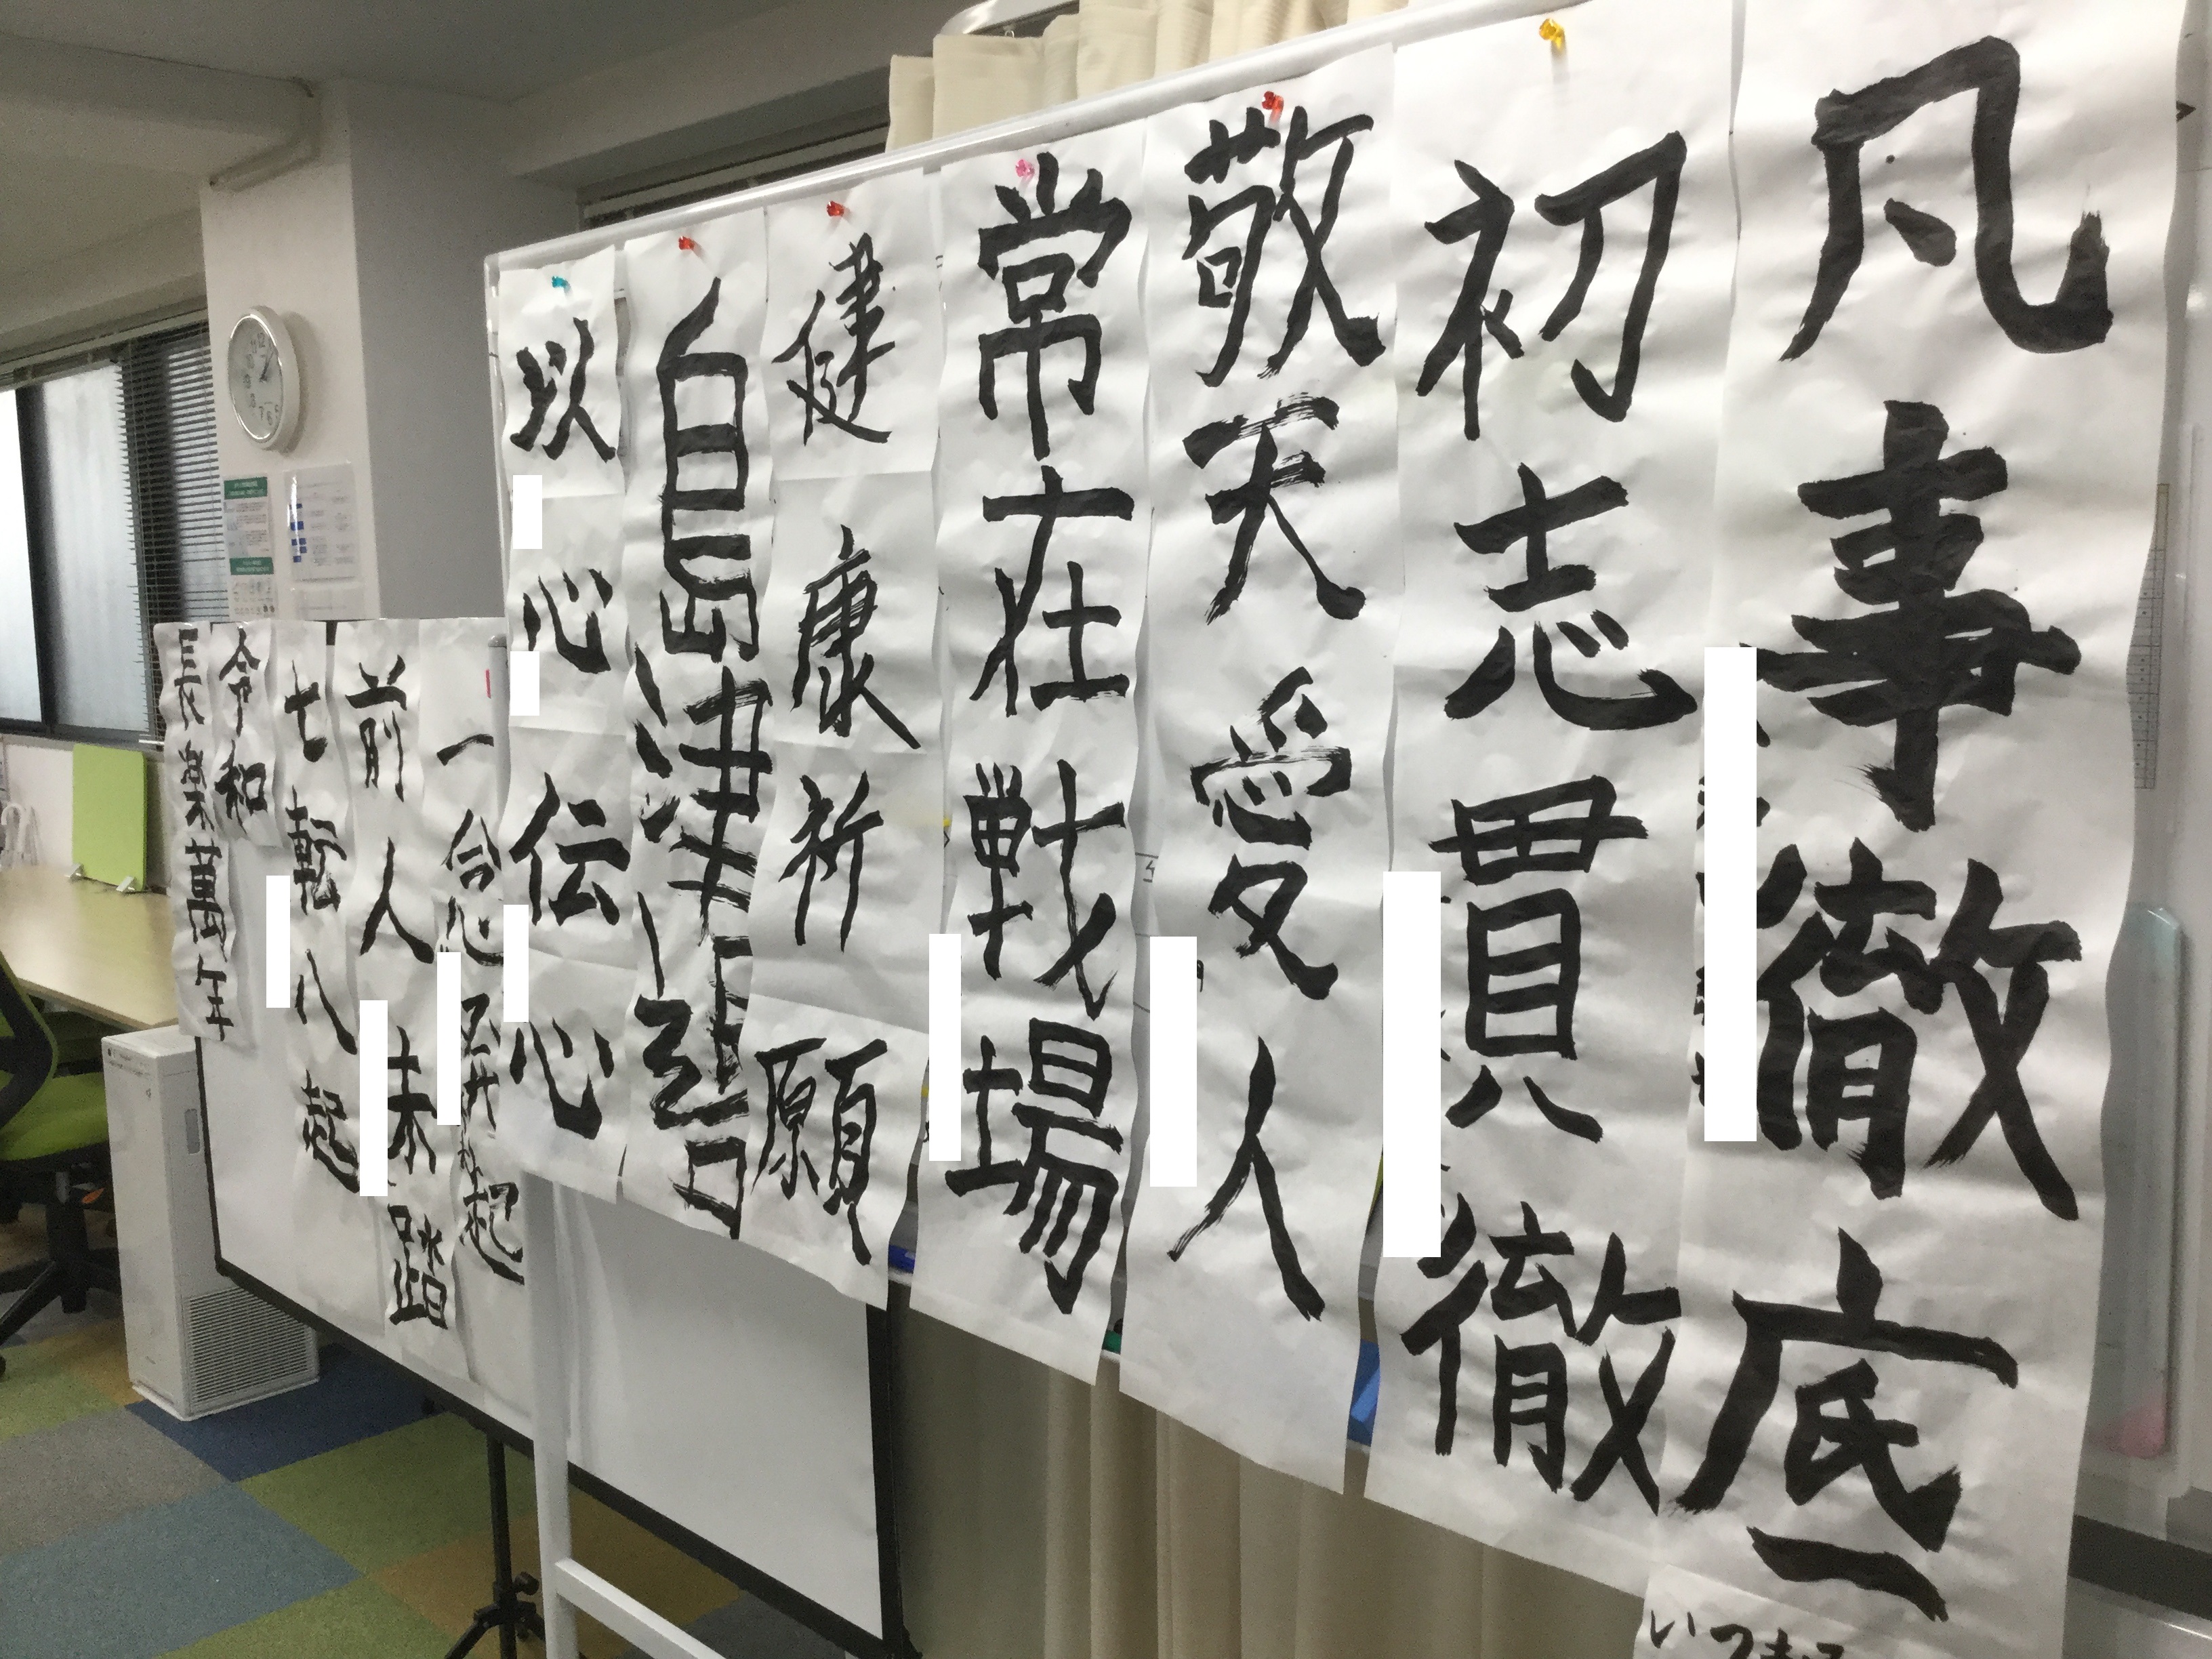 凡事徹底
初志貫徹
敬天愛人
常在戦場
健康祈願
以心伝心
一念発起
前人未踏
七転八起
令和
長榮萬年